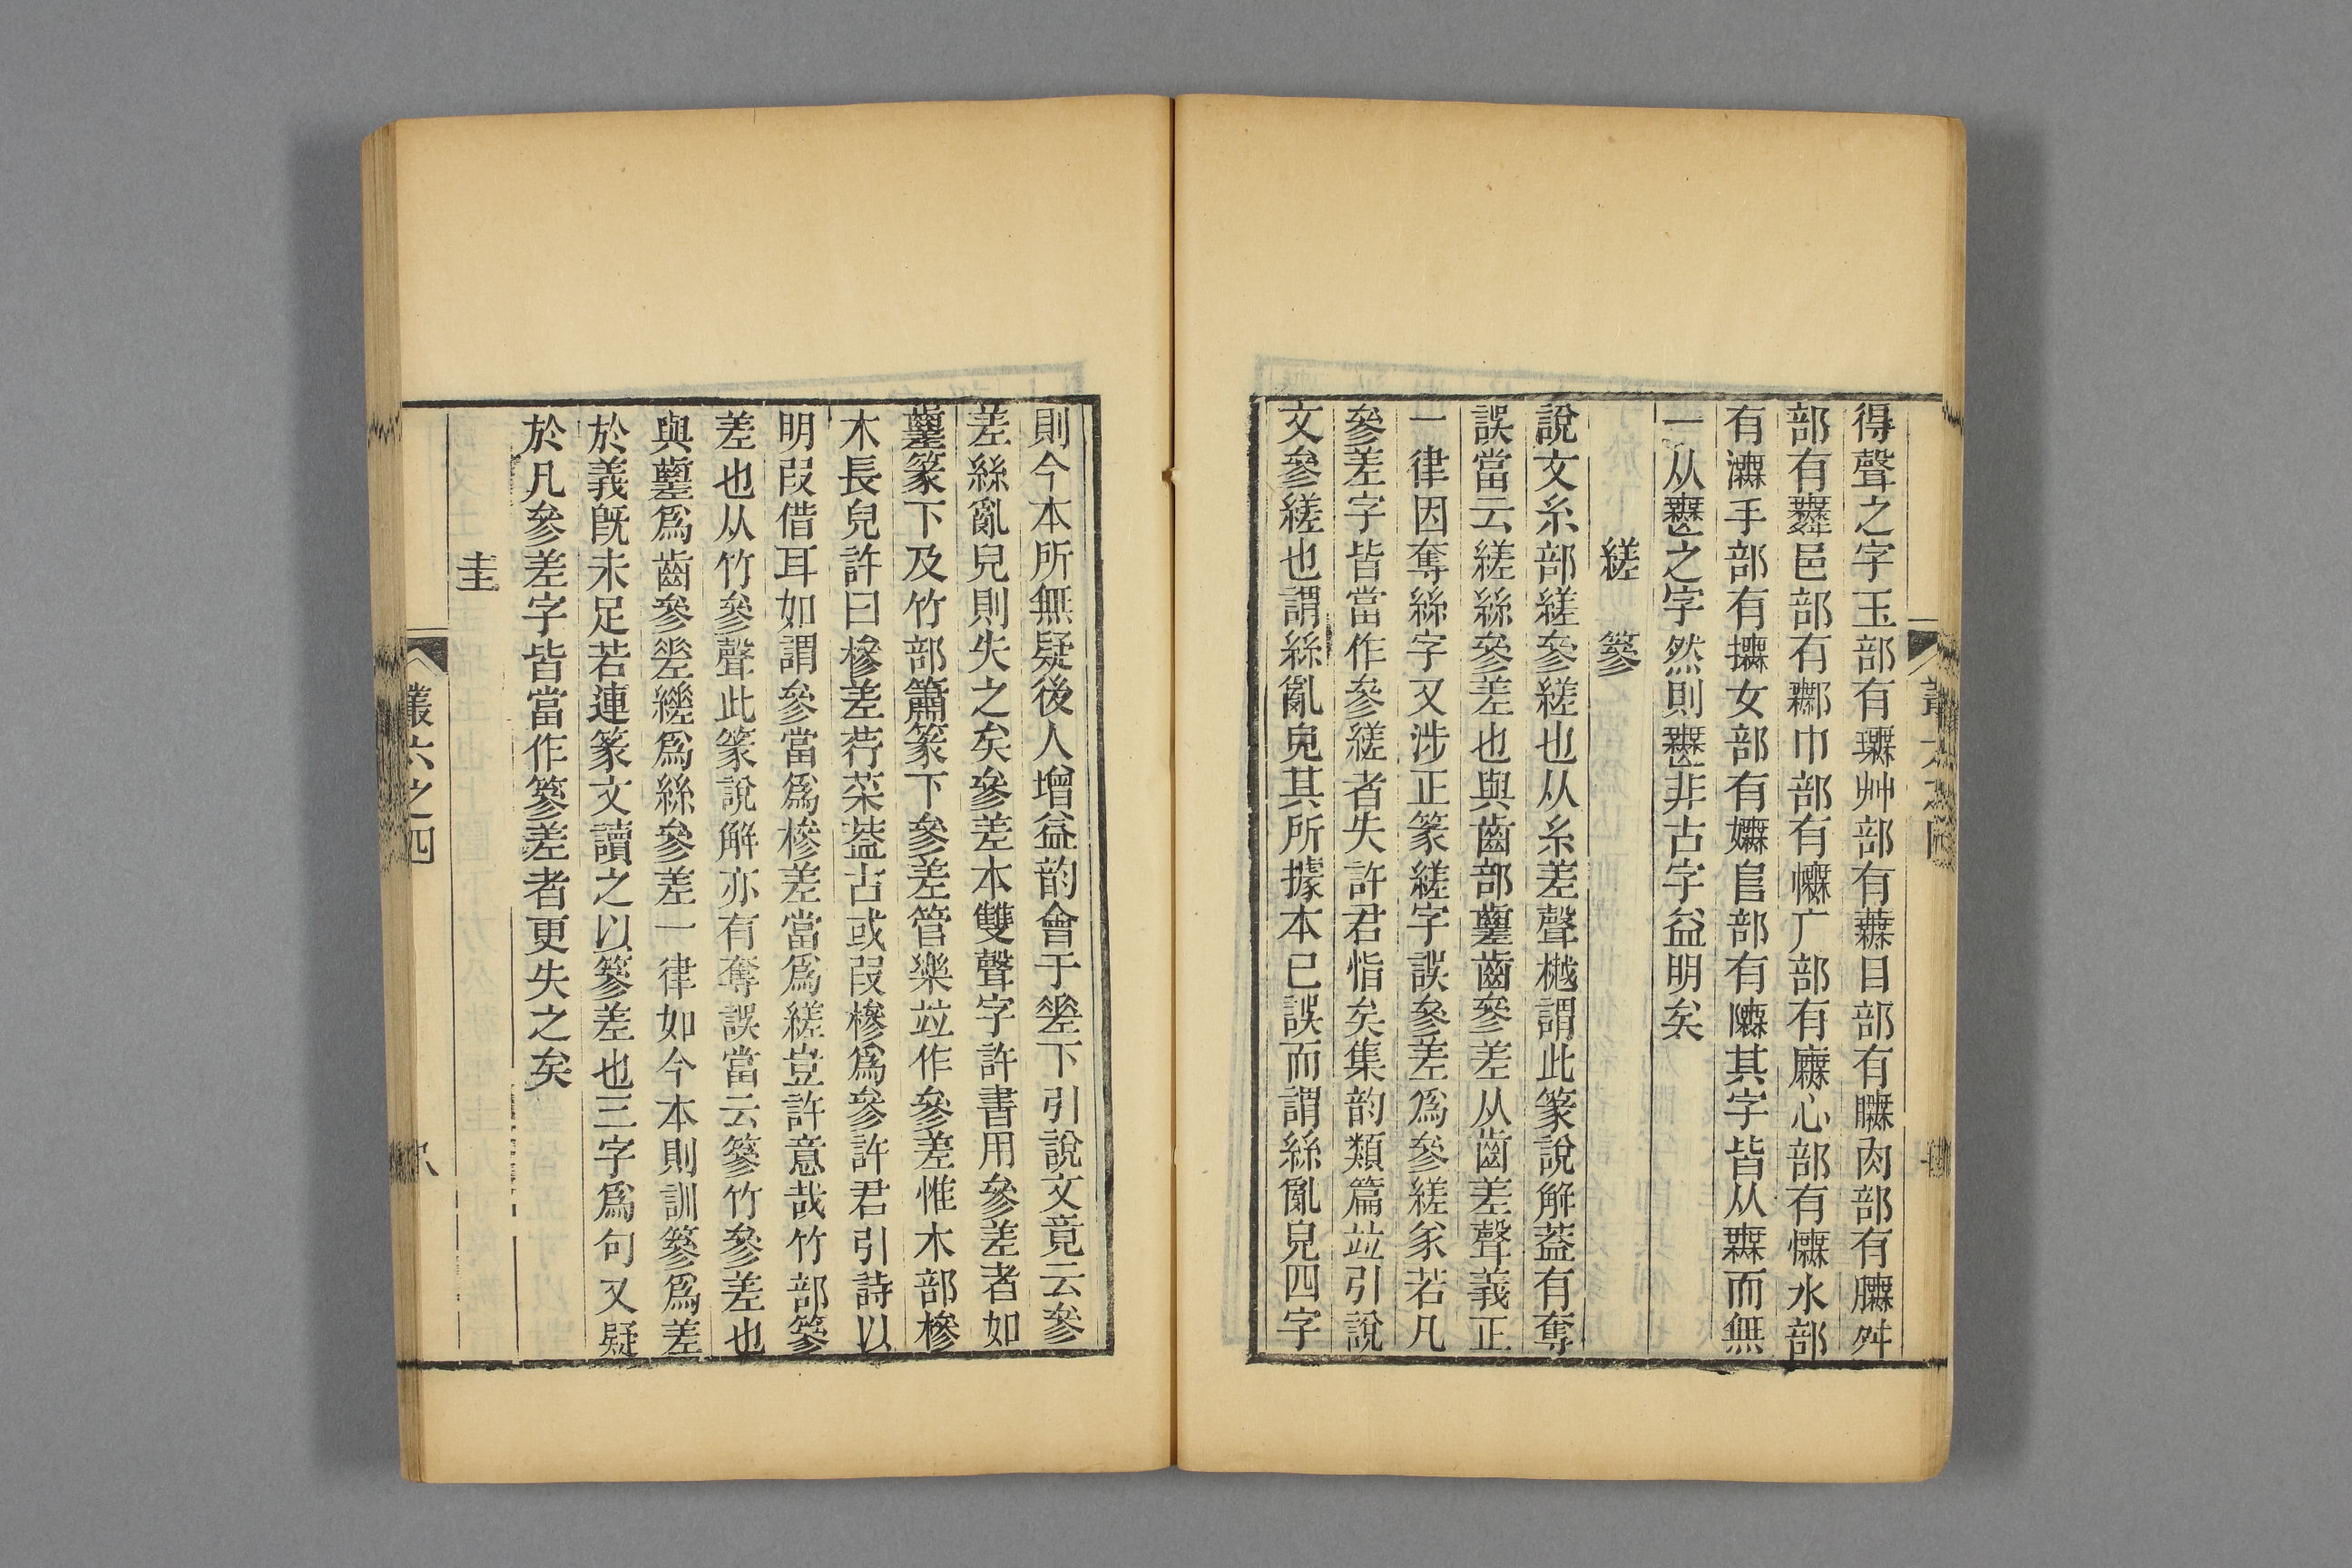 得聲之字玉部有璑艸部有蕪目部有瞴肉部有膴舛
部有舞邑部有鄦巾部有幠广部有廡心部有憮水部
有潕手部有撫女部有嫵𨸏部有隵其字皆从無而無
一从𣞤之字然則𣞤非古字益明矣
縒 篸
說文糸部縒參縒也从糸差聲樾謂此篆說解葢有奪
誤當云縒絲參差也與齒部齹齒參差从齒差聲義正
一律因奪絲字又涉正篆縒字誤參差爲參縒矣若凡
參差字皆當作參縒者失許君恉矣集韵類篇竝引說
文參縒也謂絲亂皃其所據本已誤而謂絲亂皃四字
則今本所無疑後人增益韵會于縒下引說文竟云參
差絲亂皃則失之矣參差本雙聲字許書用參差者如
齹篆下及竹部簫篆下參差管樂竝作參差惟木部槮
木長皃許曰槮差荇菜葢古或叚槮爲參許君引詩以
明叚借耳如謂參當爲槮差當爲縒豈許意哉竹部篸
差也从竹參聲此篆說解亦有奪誤當云篸竹參差也
與齹爲齒參差縒爲絲參差一律如今本則訓篸爲差
於義旣未足若連篆文讀之以篸差也三字爲句又疑
於凡參差字皆當作篸差者更失之矣
圭
叢六之四